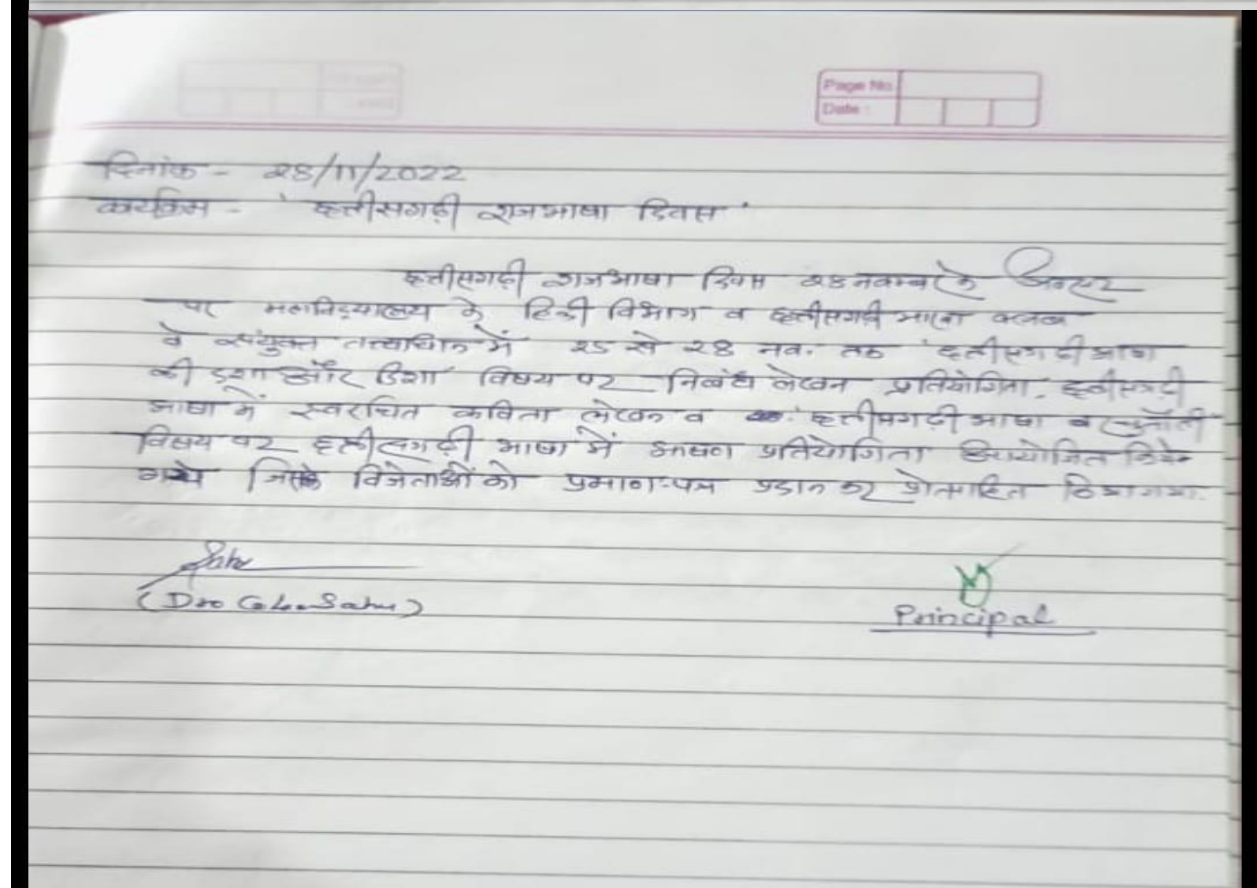 Page No.
Date :
दिनांक - 28/11/2022
कार्यक्रम - ' छत्तीसगढ़ी राजभाषा दिवस '
छत्तीसगढ़ी राजभाषा दिवस 28 नवम्बर के अवसर
पर महाविद्यालय के हिन्दी विभाग व छत्तीसगढ़ी भाषा क्लब
के संयुक्त तत्वाधान में 25 से 28 नव. तक छत्तीसगढ़ी भाषा
की दशा और दिशा विषय पर निबंध लेखन प्रतियोगिता, छत्तीसगढ़ी
भाषा में स्वरचित कविता लेखन व छत्तीसगढ़ी भाषा व चुनौती
विषय पर छत्तीसगढ़ी भाषा में भाषण प्रतियोगिता आयोजित किये
गये जिसके विजेताओं को प्रमाण-पत्र प्रदान कर प्रोत्साहित किया गया.
Sahu
Sahu)
Principal